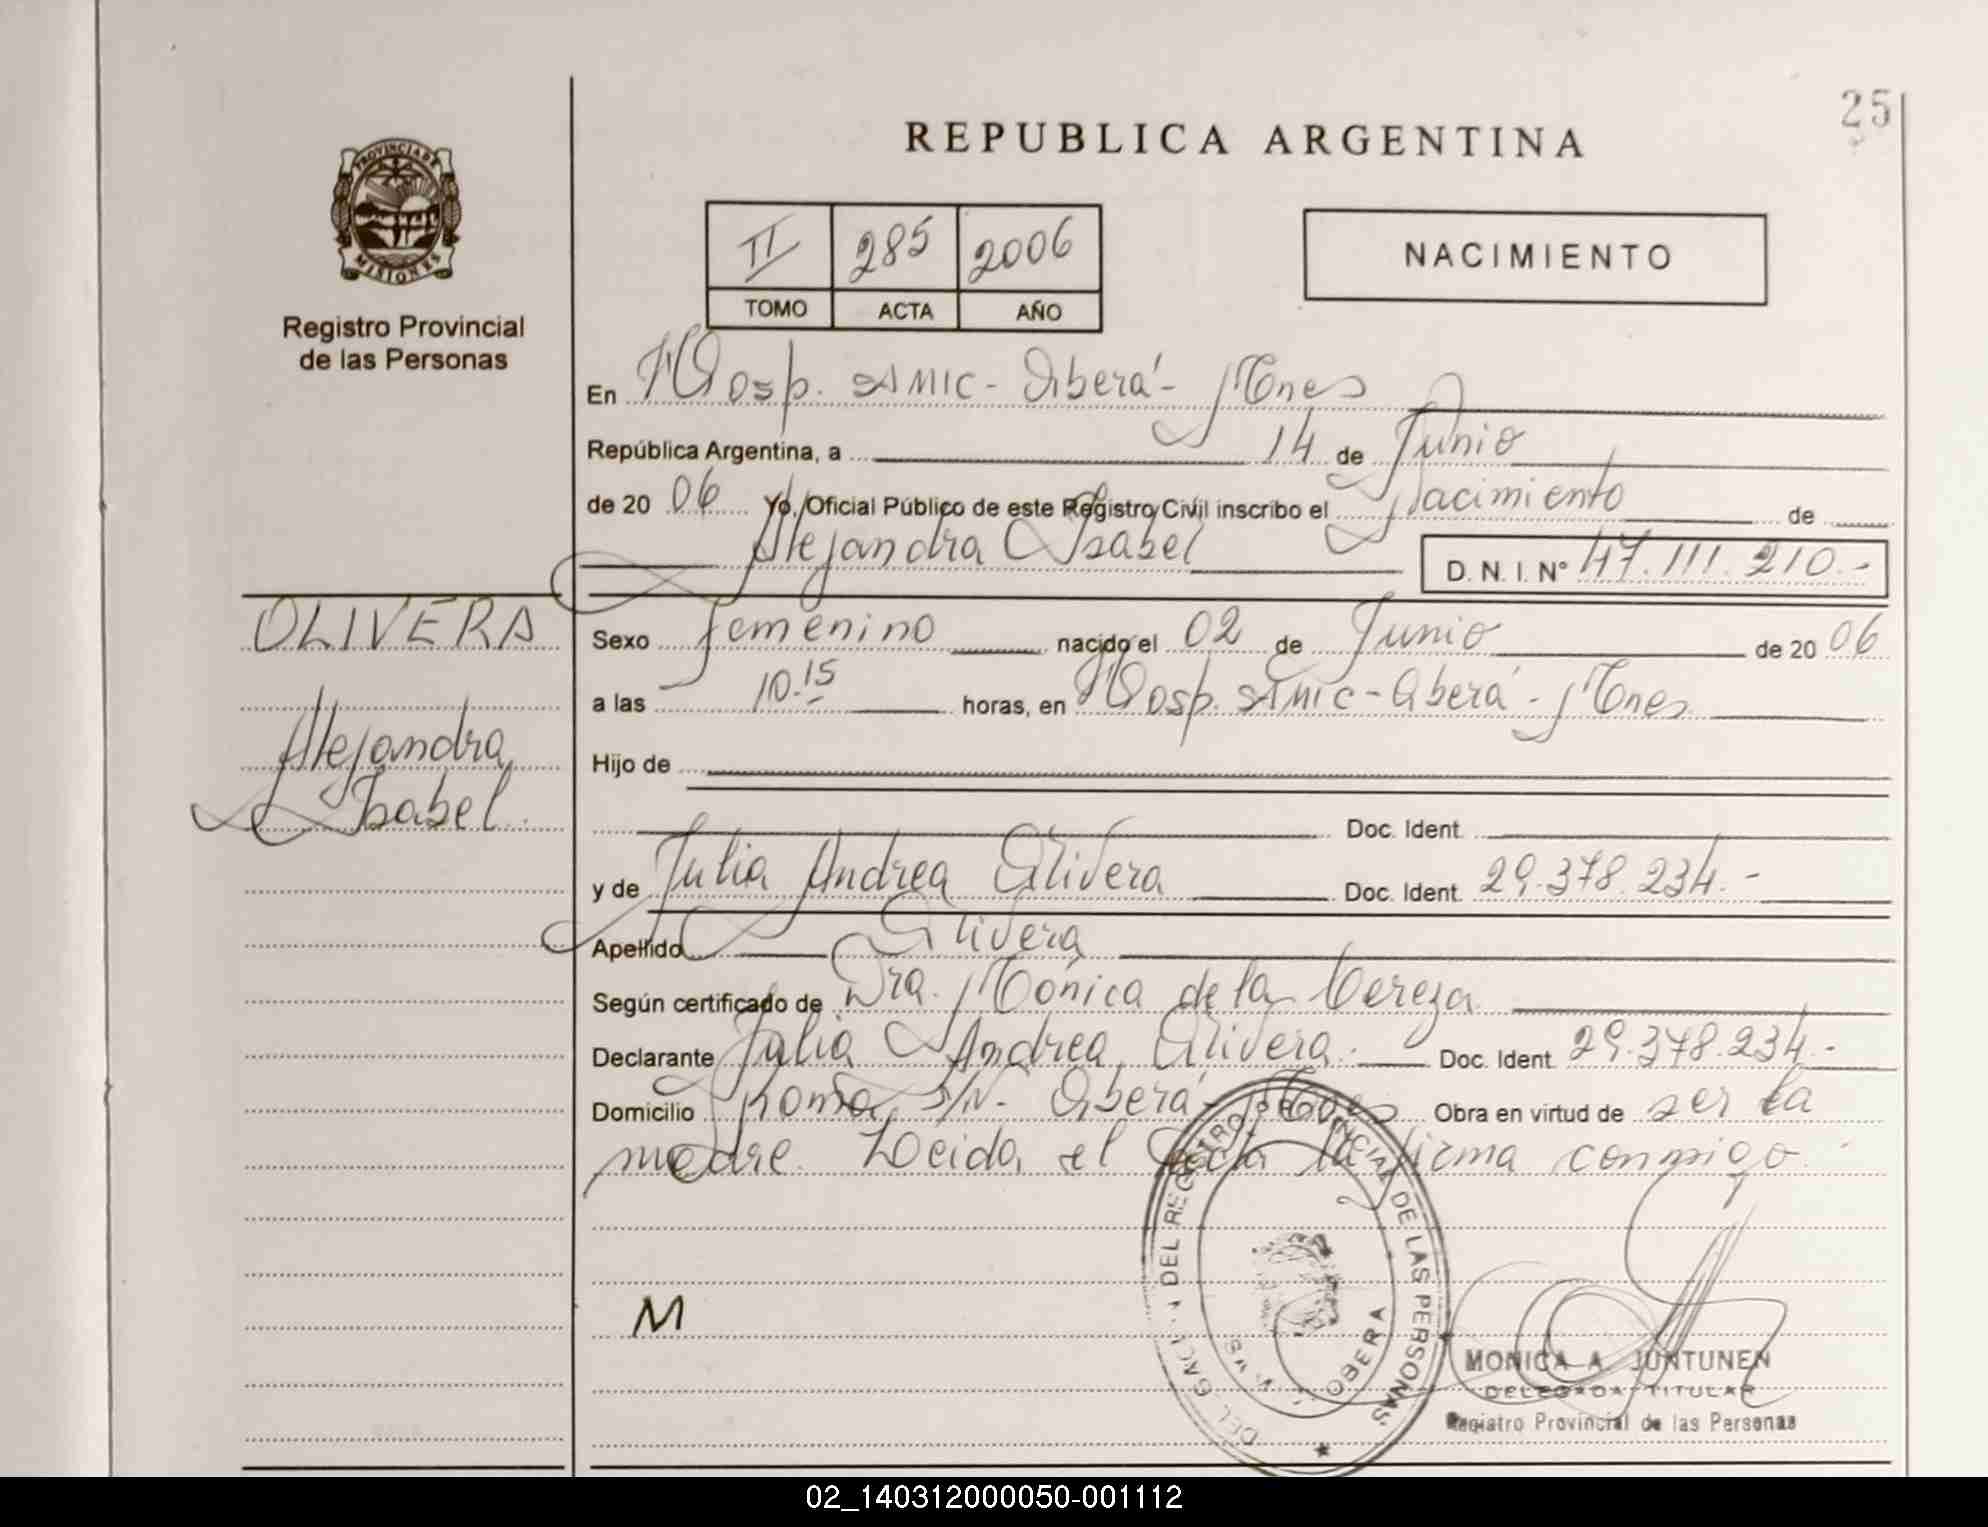 25
REPUBLICA ARGENTINA
PROVINCIA DE
MISIONES
Registro Provincial
de las Personas
II 285 2006
TOMO ACTA AÑO
NACIMIENTO
En Hosp. SAMIC - Oberá - Mnes
República Argentina, a 14 de Junio
de 20 06 Yo, Oficial Público de este Registro Civil inscribo el Nacimiento de
Alejandra Isabel D. N. I. N° 47.111.210.-
OLIVERA
Alejandra
Isabel
Sexo femenino nacido el 02 de Junio de 20 06
a las 10.15 horas, en Hosp. SAMIC - Oberá - Mnes
Hijo de
Doc. Ident.
y de Julia Andrea Olivera Doc. Ident. 29.378.234.-
Apellido Olivera
Según certificado de Dra. Mónica de la
Declarante Julia Andrea Olivera. Doc. Ident. 29.378.234.-
Domicilio S/N - Oberá - Mnes Obra en virtud de ser la
madre. Leida el Acta la firma conmigo.
M
DEL REGISTRO PROVINCIAL DE LAS PERSONAS
OBERA
MONICA A. JUNTUNEN
DELEGADA TITULAR
Registro Provincial de las Personas
02_140312000050-001112